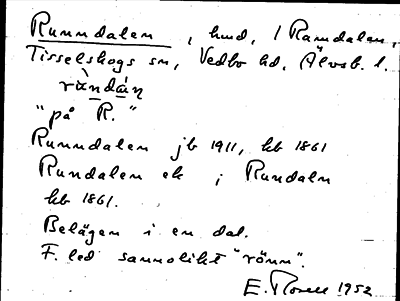 Runndalen, hmd, / Ramdalen,
Tisselskogs sn, Vedbo hd, Älvsb. l.
ràndáɳ
"på R."
Runndalen jb 1911, kb 1861
Rundalen ek i Rundaln
kb 1861.
Belägen i en dal.
F. led sannolikt "rönn".
E. Rosell 1952